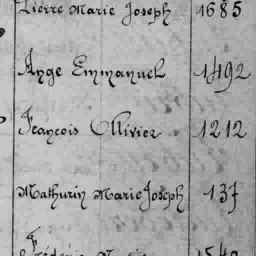 Pierre Marie Joseph 1685
Ange Emmanuel 1492
François Ollivier 1212
Mathurin Marie Joseph 137
Frédéric